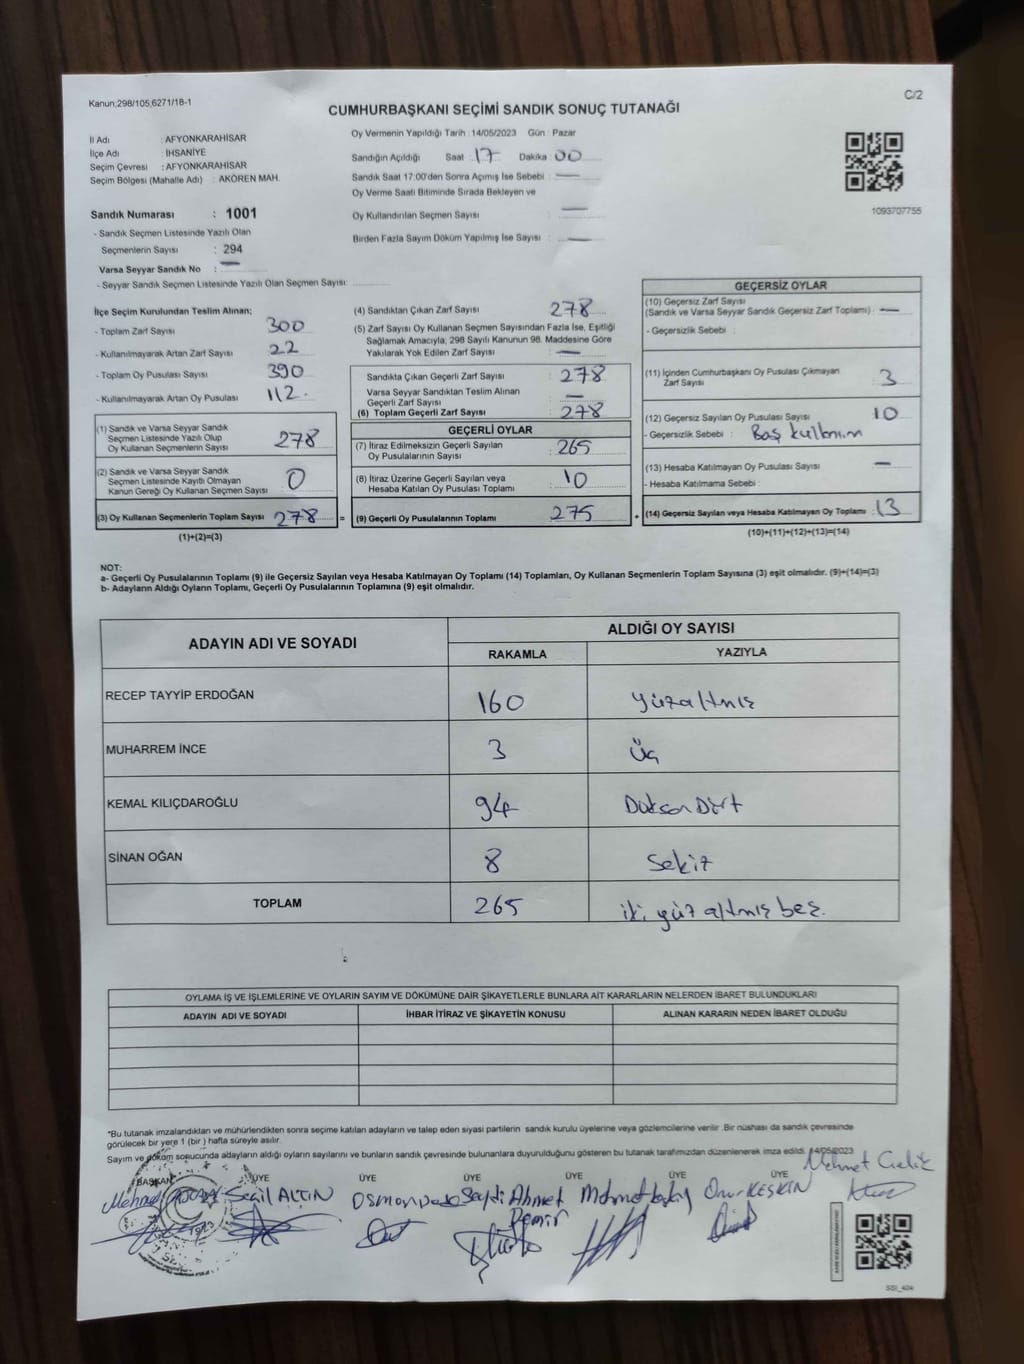 Kanun;298/105,6271/18-1
C/2
CUMHURBAŞKANI SEÇİMİ SANDIK SONUÇ TUTANAĞI
İl Adı : AFYONKARAHİSAR
İlçe Adı : İHSANİYE
Seçim Çevresi : AFYONKARAHİSAR
Seçim Bölgesi (Mahalle Adı) : AKÖREN MAH.
Sandık Numarası : 1001
- Sandık Seçmen Listesinde Yazılı Olan
Seçmenlerin Sayısı : 294
Varsa Seyyar Sandık No : —
- Seyyar Sandık Seçmen Listesinde Yazılı Olan Seçmen Sayısı:
Oy Vermenin Yapıldığı Tarih : 14/05/2023 Gün : Pazar
Sandığın Açıldığı Saat : 17 Dakika : 00
Sandık Saat 17:00'den Sonra Açımış İse Sebebi : —
Oy Verme Saati Bitiminde Sırada Bekleyen ve
Oy Kullandırılan Seçmen Sayısı : —
Birden Fazla Sayım Döküm Yapılmış İse Sayısı : —
1093707755
İlçe Seçim Kurulundan Teslim Alınan;
- Toplam Zarf Sayısı : 300
- Kullanılmayarak Artan Zarf Sayısı : 22
- Toplam Oy Pusulası Sayısı : 390
- Kullanılmayarak Artan Oy Pusulası : 112.
(1) Sandık ve Varsa Seyyar Sandık
Seçmen Listesinde Yazılı Olup
Oy Kullanan Seçmenlerin Sayısı : 278
(2) Sandık ve Varsa Seyyar Sandık
Seçmen Listesinde Kayıtlı Olmayan
Kanun Gereği Oy Kullanan Seçmen Sayısı : 0
(3) Oy Kullanan Seçmenlerin Toplam Sayısı : 278 =
(1)+(2)=(3)
(4) Sandıktan Çıkan Zarf Sayısı : 278
(5) Zarf Sayısı Oy Kullanan Seçmen Sayısından Fazla İse, Eşitliği
Sağlamak Amacıyla; 298 Sayılı Kanunun 98. Maddesine Göre
Yakılarak Yok Edilen Zarf Sayısı : —
Sandıkta Çıkan Geçerli Zarf Sayısı : 278
Varsa Seyyar Sandıktan Teslim Alınan
Geçerli Zarf Sayısı : —
(6) Toplam Geçerli Zarf Sayısı : 278
GEÇERLİ OYLAR
(7) İtiraz Edilmeksizin Geçerli Sayılan
Oy Pusulalarının Sayısı : 265
(8) İtiraz Üzerine Geçerli Sayılan veya
Hesaba Katılan Oy Pusulası Toplamı : 10
(9) Geçerli Oy Pusulalarının Toplamı : 275 +
GEÇERSİZ OYLAR
(10) Geçersiz Zarf Sayısı
(Sandık ve Varsa Seyyar Sandık Geçersiz Zarf Toplamı) : —
- Geçersizlik Sebebi :
(11) İçinden Cumhurbaşkanı Oy Pusulası Çıkmayan
Zarf Sayısı : 3
(12) Geçersiz Sayılan Oy Pusulası Sayısı : 10
- Geçersizlik Sebebi : Boş kullanım
(13) Hesaba Katılmayan Oy Pusulası Sayısı : —
- Hesaba Katılmama Sebebi :
(14) Geçersiz Sayılan veya Hesaba Katılmayan Oy Toplamı : 13
(10)+(11)+(12)+(13)=(14)
NOT:
a- Geçerli Oy Pusulalarının Toplamı (9) ile Geçersiz Sayılan veya Hesaba Katılmayan Oy Toplamı (14) Toplamları, Oy Kullanan Seçmenlerin Toplam Sayısına (3) eşit olmalıdır. (9)+(14)=(3)
b- Adayların Aldığı Oyların Toplamı, Geçerli Oy Pusulalarının Toplamına (9) eşit olmalıdır.
ADAYIN ADI VE SOYADI
ALDIĞI OY SAYISI
RAKAMLA YAZIYLA
RECEP TAYYİP ERDOĞAN 160 yüzaltmış
MUHARREM İNCE 3 üç
KEMAL KILIÇDAROĞLU 94 Doksan Dört
SİNAN OĞAN 8 Sekiz
TOPLAM 265 iki yüz altmış beş.
OYLAMA İŞ VE İŞLEMLERİNE VE OYLARIN SAYIM VE DÖKÜMÜNE DAİR ŞİKAYETLERLE BUNLARA AİT KARARLARIN NELERDEN İBARET BULUNDUKLARI
ADAYIN ADI VE SOYADI İHBAR İTİRAZ VE ŞİKAYETİN KONUSU ALINAN KARARIN NEDEN İBARET OLDUĞU
*Bu tutanak imzalandıktan ve mühürlendikten sonra seçime katılan adayların ve talep eden siyasi partilerin sandık kurulu üyelerine veya gözlemcilerine verilir. Bir nüshası da sandık çevresinde
görülecek bir yere 1 (bir ) hafta süreyle asılır.
Sayım ve döküm sonucunda adayların aldığı oyların sayılarını ve bunların sandık çevresinde bulunanlara duyurulduğunu gösteren bu tutanak tarafımızdan düzenlenerek imza edildi. 14/05/2023
BAŞKAN ÜYE ÜYE ÜYE ÜYE ÜYE ÜYE
Mehmet Çelik
Seyit ALTIN
Ahmet
Demir
Onur KESKİN
SSI_404